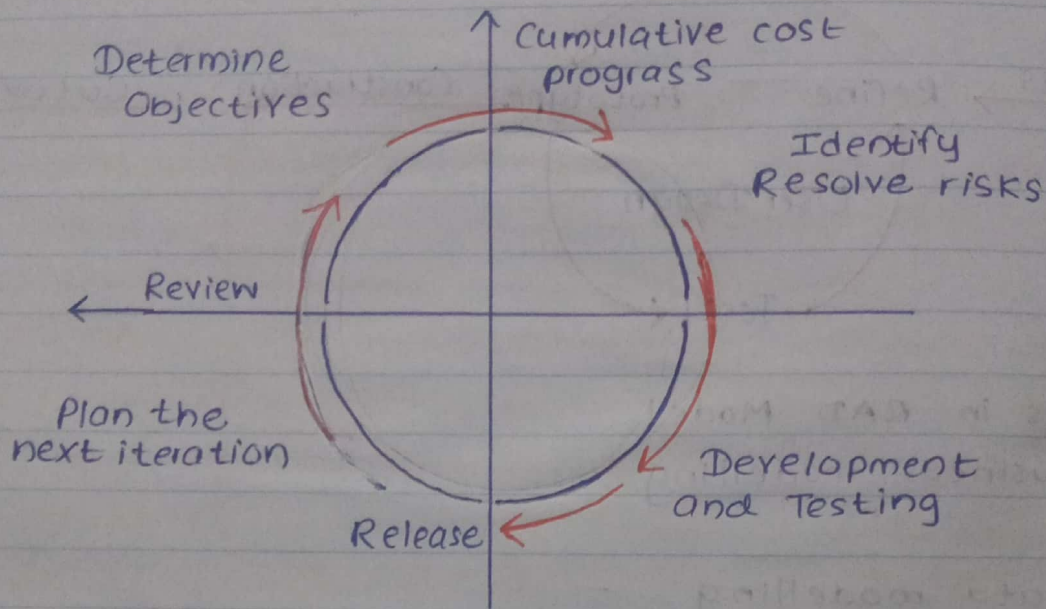 Determine
Objectives
Cumulative cost
prograss
Identify
Resolve risks
Review
Plan the
next iteration
Development
and Testing
Release